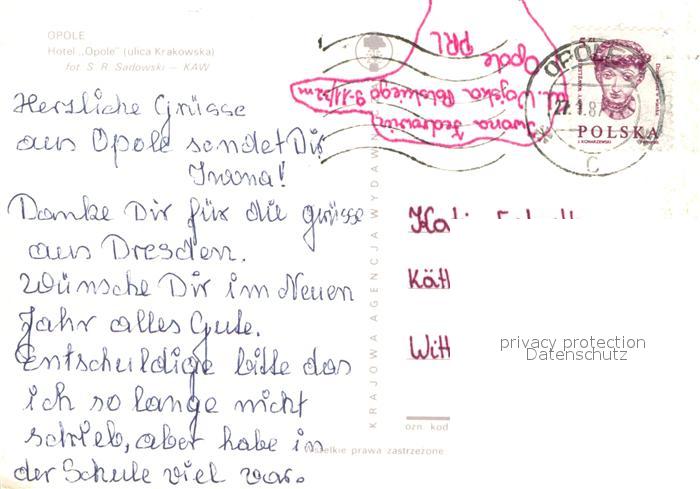 OPOLE
Hotel „Opole" (ulica Krakowska)
fot. S. R. Sadowski — KAW
Herzliche Grüsse
aus Opole sendet Dir
Iwona!
Danke Dir für die grüsse
aus Dresden.
Wünsche Dir im Neuen
Jahr alles Gute.
Entschuldige bitte das
ich so lange nicht
schrieb, aber habe in
der Schule viel war.
Iwona
pl. Wojska Polskiego
Opole
PRL
KRAJOWA AGENCJA WYDAW
OPOLE
27.1.87
C
5 ZŁ
POLSKA
Kati
Kätl
Witt
privacy protection
Datenschutz
ozn. kod
wszelkie prawa zastrzeżone